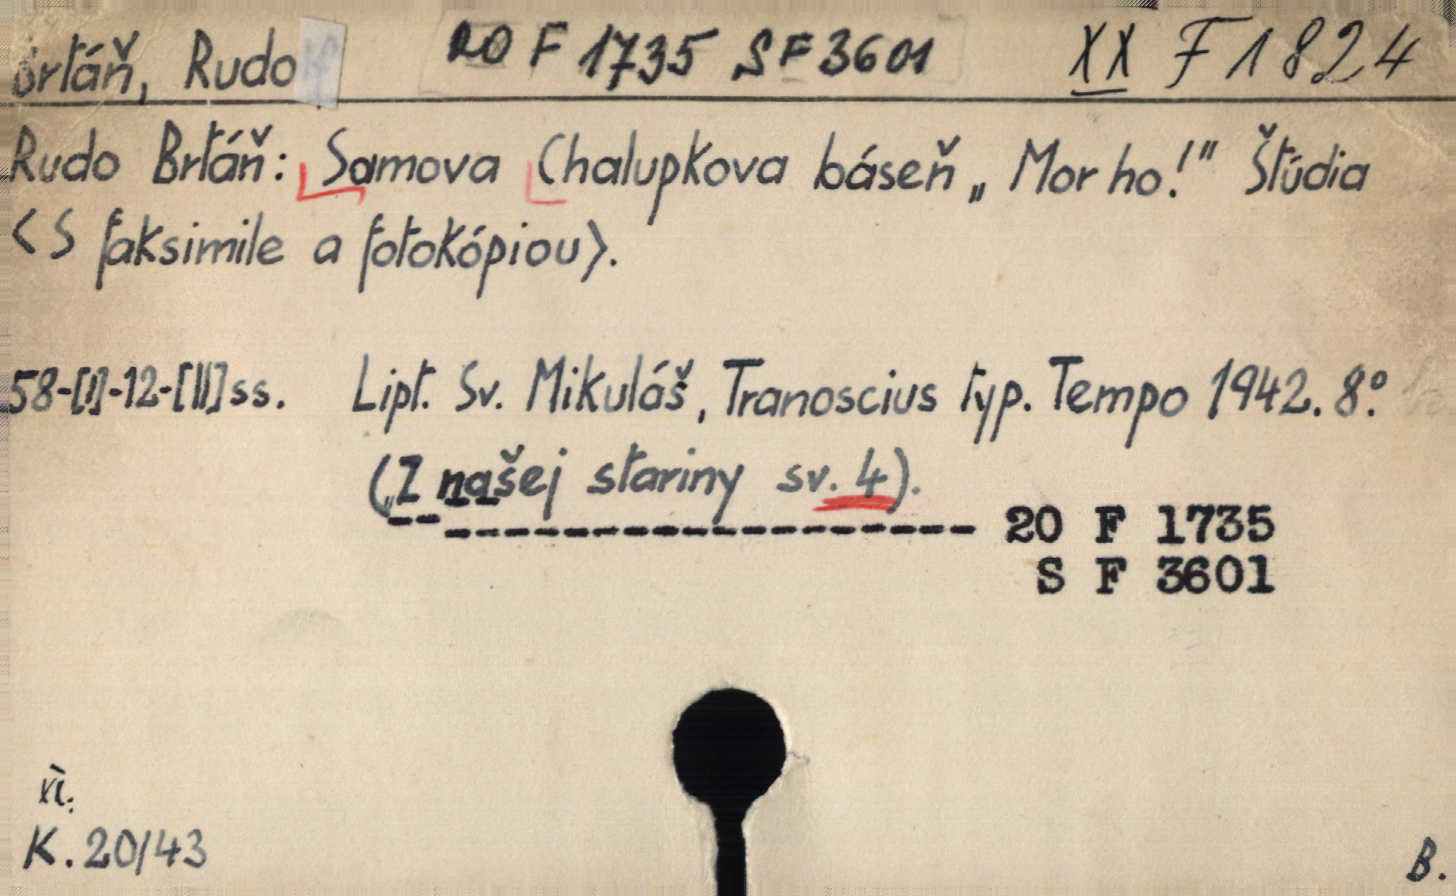 Brťáň, Rudo 20 F 1735 S F 3601 XX F 1824
Rudo Brťáň: Samova Chalupkova báseň „Mor ho!" Štúdia
<S faksimile a fotokópiou>.
58-[I]-12-[II] ss. Lipt. Sv. Mikuláš, Tranoscius typ. Tempo 1942. 8º.
(„Z našej stariny sv. 4).
20 F 1735
S F 3601
XI.
K. 20/43
B.